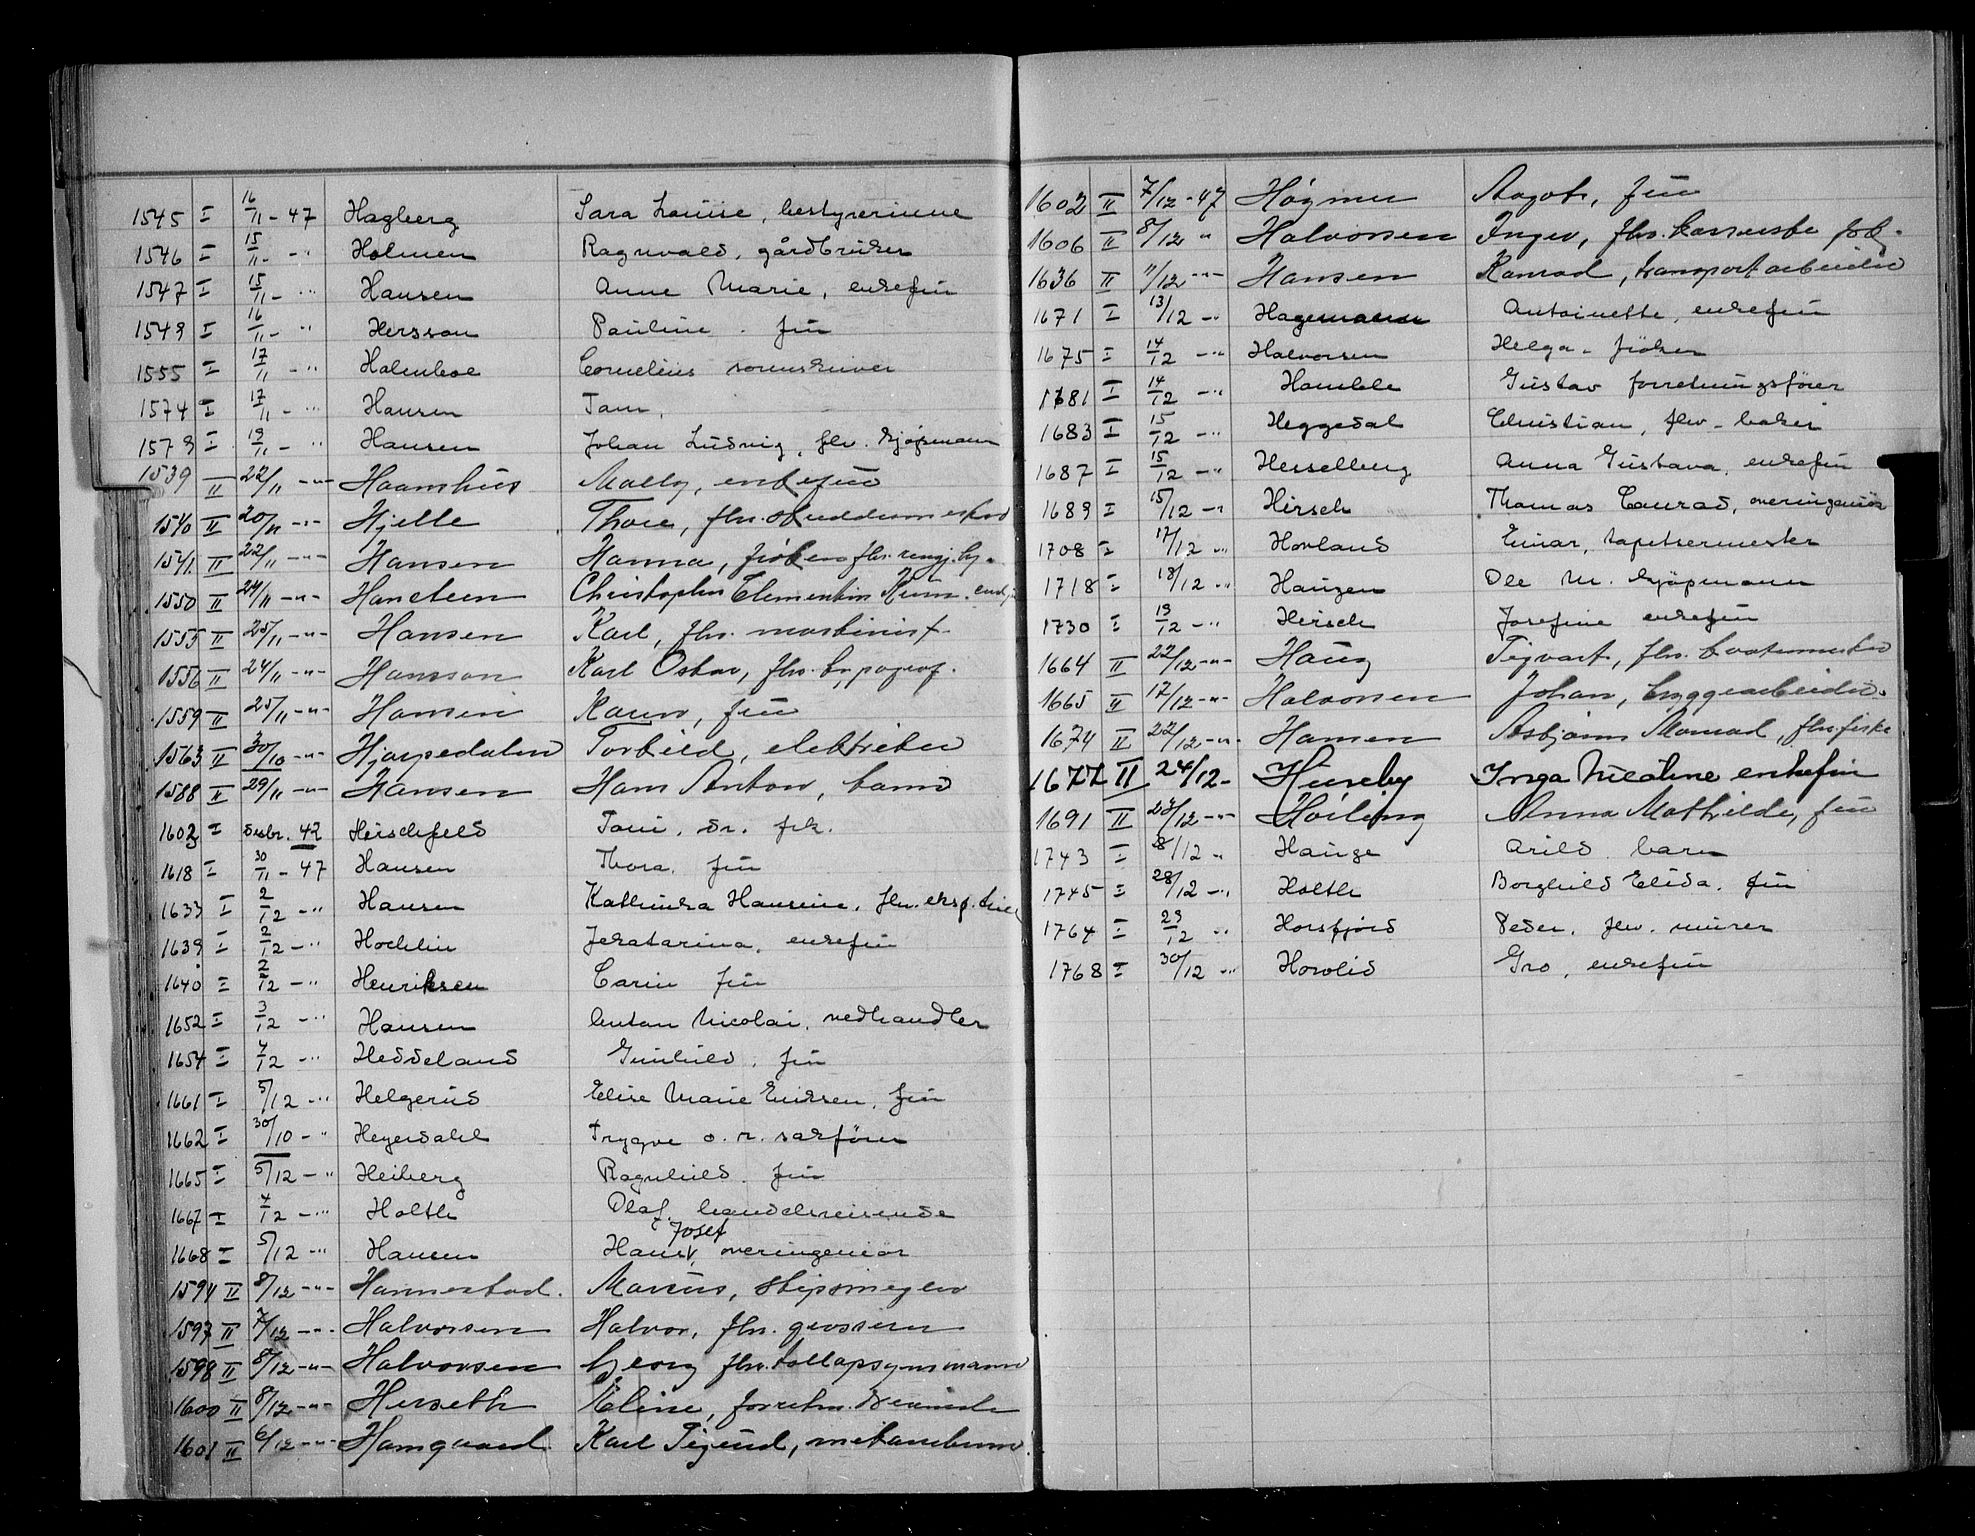 1545 I 16/11 - 47 Hagberg Sara Louise, bestyrerinne
1546 I 15/11 - " Holmen Ragnvald, gårdbruker
1547 I 15/11 - " Hansen Anne Marie, enkefru
1549 I 16/11 - " Hersson Pauline. fru
1555 I 17/11 - " Holmboe Cornelius sorenskriver
1574 I 17/11 - " Hansen Tom,
1579 I 19/11 - " Hansen Johan Ludvig, fhv. kjøpmann
1539 II 22/11 - " - Haamhus Mally, enkefru
1540 II 20/11 - " - Hjelle Thore, fhv.
1541 II 22/11 - " - Hansen Hanna, frøken fhv. rengj.
1550 II 24/11 - " - Hansteen Christopher Clementin
1555 II 25/11 - " - Hansen Karl, fhv. maskinist.
1556 II 24/11 - " - Hansson Karl Oskar, fhv. typograf.
1559 II 25/11 - " - Hansen Karen, fru
1563 II 30/10 - " - Hjorpedalen Torkild, elektriker
1588 II 29/11 - " - Hansen Hans Anton, barn
1602 I desbr. 42 Heischfeld Toni, dr. frk.
1618 I 30/11 - 47 Hansen Thora, fru
1633 I 2/12 - " Hansen Kathinka Hansine, fhv. eksp.
1639 I 2/12 - " Hochlin Jekatarina, enkefru
1640 I 2/12 - " Henriksen Carin fru
1652 I 3/12 - " Hansen Anton Nicolai, vedhandler
1654 I 4/12 - " Heddeland Gunhild, fru
1661 I 5/12 - " Helgerud Elise Marie Eriksen, fru
1662 I 30/10 - " Heyerdahl Trygve o. r. sakfører
1665 I 5/12 - " Heiberg Ragnhild. fru
1667 I 4/12 - " Holth Olaf, handelsreisende
1668 I 5/12 - " Hansen Hans Josef, overingeniør
1594 II 8/12 - " - Hannestad. Marius, skipsmegler
1597 II 7/12 - " - Halvorsen Halvor, fhv. grosserer
1598 II 8/12 - " - Halvorsen Georg fhv. tollopsynsmann
1600 II 8/12 - " - Herseth Eline, forretn.
1601 II 6/12 - " - Hamgaard Karl Sigurd, mekaniker
1602 II 7/12 - 47 Høgmer Aagot, fru
1606 II 8/12 " Halvorsen Inger, fhv. kasserske
1636 II 11/12 - " - Hansen Konrad, transportarbeider
1671 I 13/12 - " Hagemann Antoinette, enkefru
1675 I 14/12 - " Halvorsen Helga. frøken
1681 I 14/12 - " Hamble Gustav forretningsfører
1683 I 15/12 - " Heggedal Christian, fhv. baker
1687 I 15/12 - " Hesselberg Anna Gustava, enkefru
1689 I 15/12 - " Hirsch Thomas Conrad, overingeniør
1708 I 17/12 - " Hovland Einar, tapetsermester
1718 I 18/12 - " Haugen Ole M. kjøpmann
1730 I 19/12 - " Hirsch Josefine enkefru
1664 II 22/12 - " - Haug Sigvart, fhv.
1665 II 17/12 - " - Halvorsen Johan, bryggearbeider.
1674 II 22/12 - " - Hansen Asbjørn Monrad, fhv. fisker
1677 II 24/12 - Huseby Inga Nicoline enkefru
1691 II 28/12 - " - Høiling Anna Mathilde, fru
1743 I 8/12 " Hauge Arild. barn
1745 I 28/12 - " Holth Borghild Elida. fru
1764 I 29/12 " Horsfjord Peder, fhv. murer
1768 I 30/12 - " Hovlid Gro, enkefru